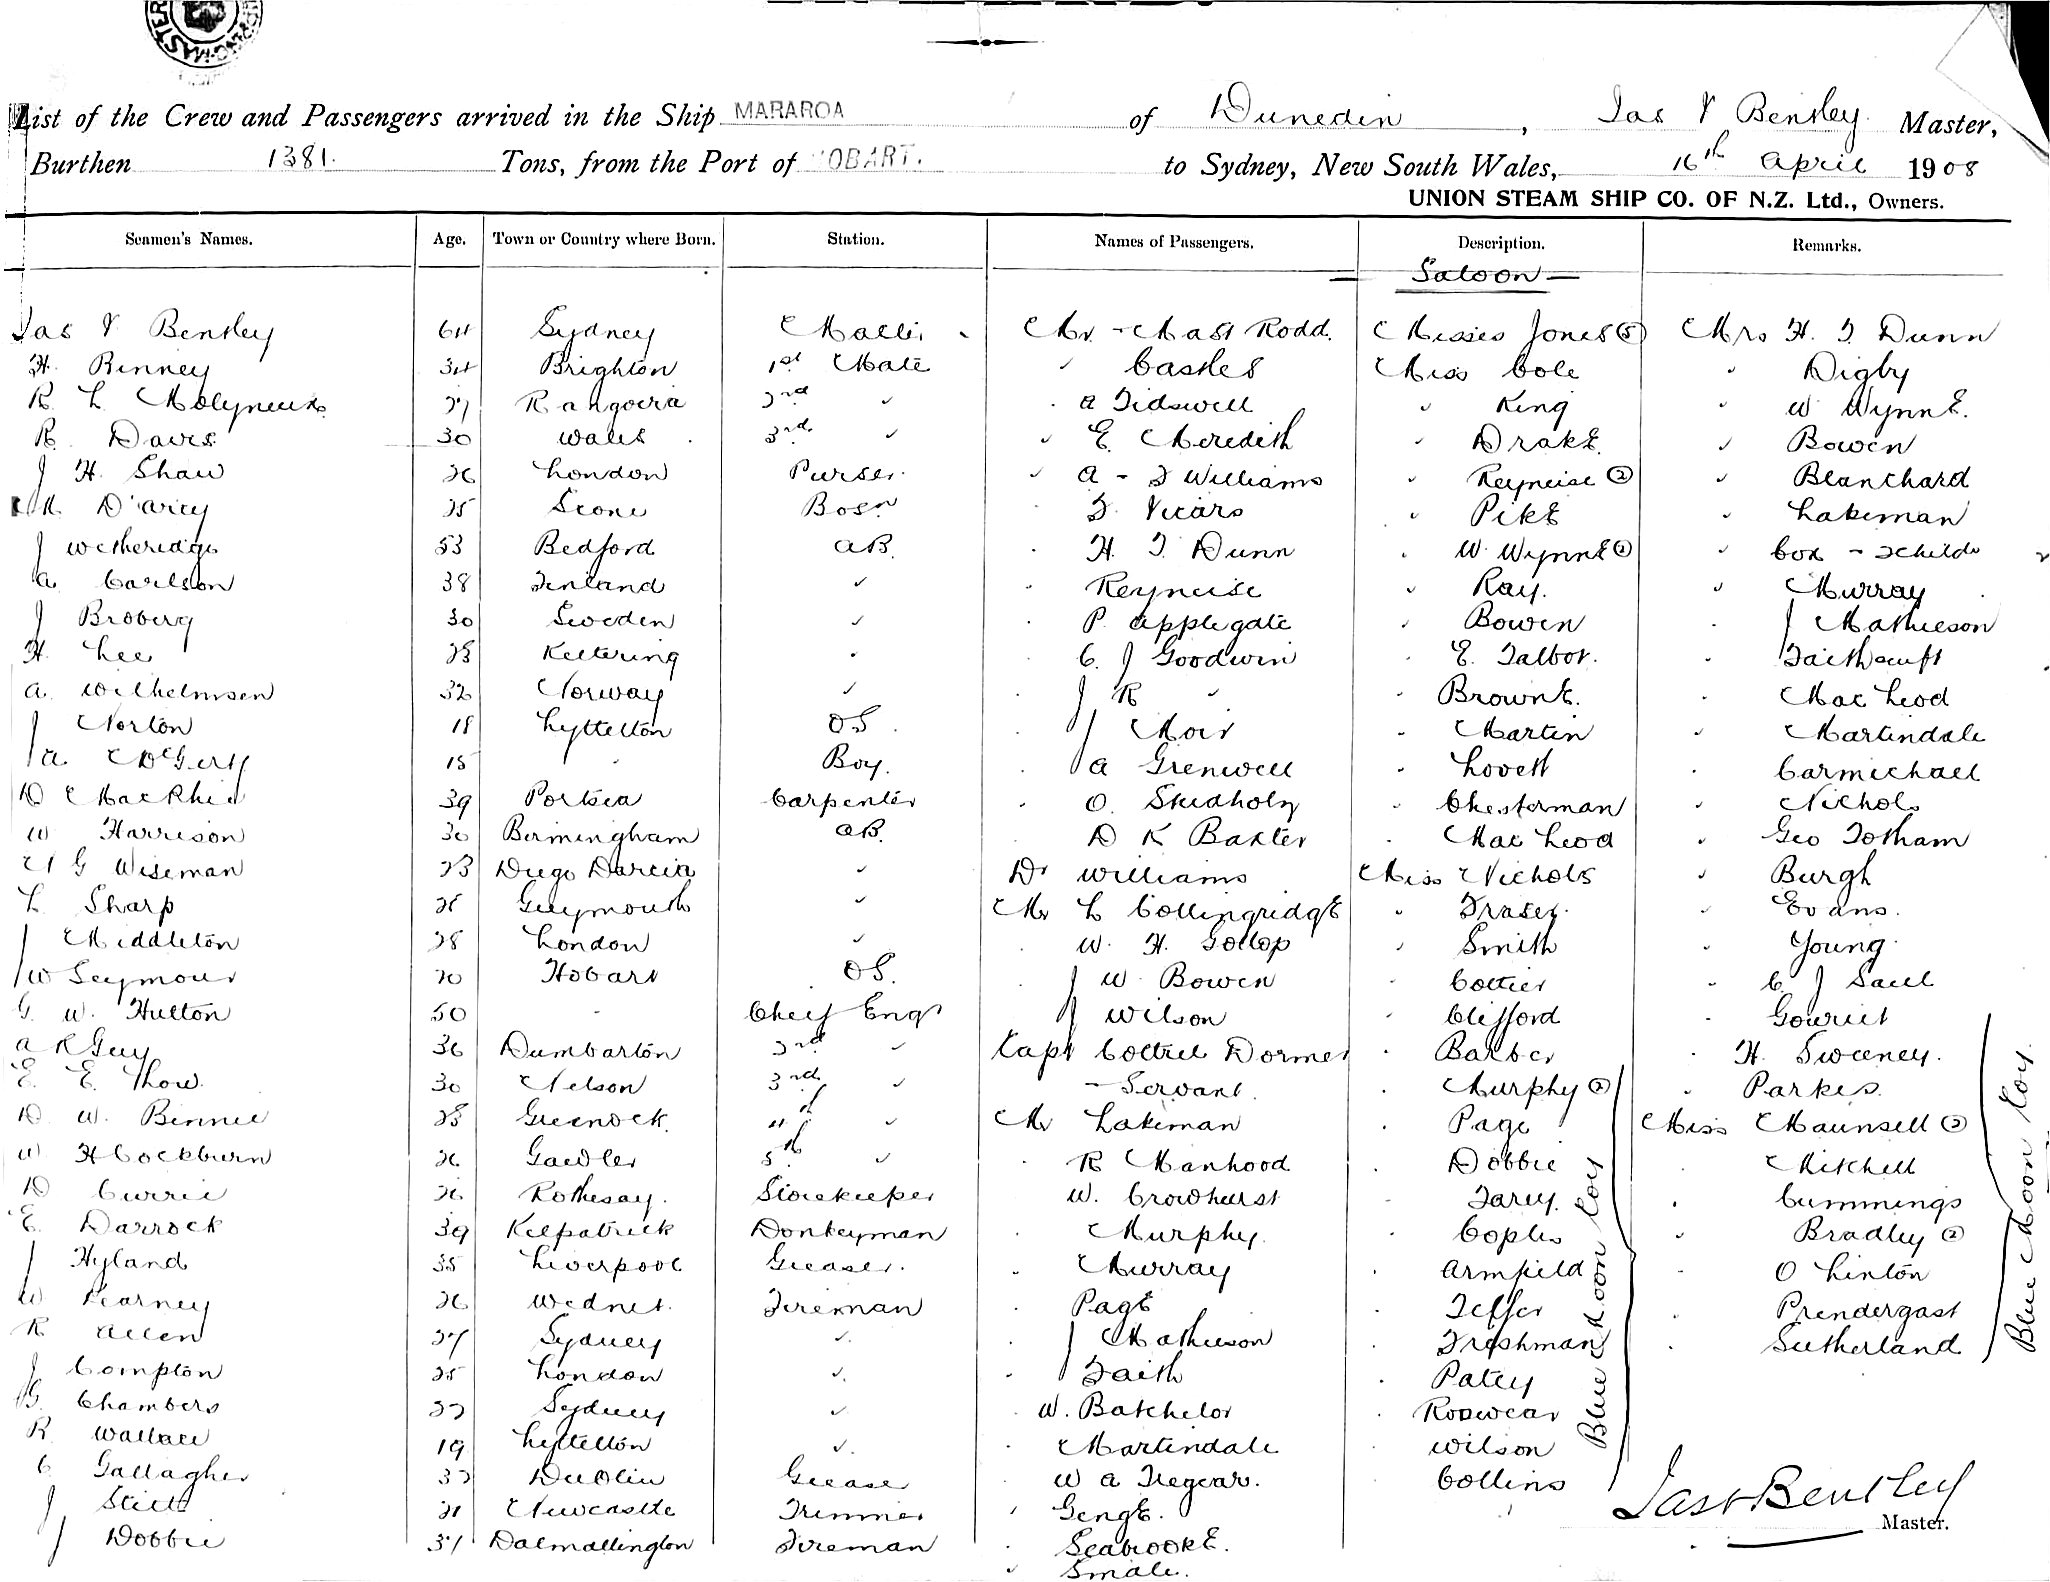 List of the Crew and Passengers arrived in the Ship MARAROA of Dunedin, Jas V Bentley Master,
Burthen 1381. Tons, from the Port of HOBART. to Sydney, New South Wales, 16th April 1908
UNION STEAM SHIP CO. OF N.Z. Ltd., Owners.
Seamen's Names. Age. Town or Country where Born. Station. Names of Passengers. Description. Remarks.
Saloon
Jas V Bentley 64 Sydney Mr - Mast Rodd. Misses Jones (5) Mrs H. T. Dunn
H. Binney 34 Brighton 1st Mate " Castles Miss Cole " Digby
R L Molyneux 27 2nd " " A Tidswell " King " W Wynne.
R. Davis 30 Wales 3rd " " E. Meredith " Drake. " Bowen
J H. Shaw 26 London Purser. " A - F Williams " Reyneise (2) " Blanchard
M. D'arcy 25 Scone Bosn " F. Vicars " Pike " Lakeman
J Wetheridge 53 Bedford AB. " H. T. Dunn " W. Wynne (2) " Cox -
A. Carlson 38 Finland " " Reyneise " Ray. " Murray
J Broberg 30 Sweden " " P. Applegate " Bowen " J Mathieson
H. Lee 23 Kettering " " C. J Goodwin " E. Talbot. "
A. Wilhelmsen 32 Norway " " J R " " Browne. " MacLeod
J Norton 18 Lyttelton OS. " J Moir " Martin " Martindale
J A. McGerty 15 " Boy. " J A Grenwell " Lovett " Carmichael
D MacPhie 39 Portsea Carpenter " O. " Chesterman " Nichols
W Harrison 30 Birmingham AB. " D K Baxter " MacLeod " Geo Totham
G Wiseman 23 " Dr Williams Miss Nichols " Burgh
L Sharp 21 Greymouth " Mr L Collingridge " Fraser. " Evans.
J Middleton 28 London " " W. H. Gollop " Smith " Young.
J W Seymour 20 Hobart OS. " J W. Bowen " Cottier " C J Saul
G. W. Hutton 50 " Chief Engr " J Wilson " Clifford "
A R Guy 36 Dumbarton 2nd " Capt Cottrel Dormer " Barber " H. Sweeney.
E. E. Thow. 30 Nelson 3rd " - Servant. " Murphy (2) " Parkes.
D W. Binnie 23 Greenock. 4th " Mr Lakeman " Page Miss Maunsell (2)
W H Cockburn 26 Gawler 5th " " R Manhood " Dobbie " Mitchell
D Currie 26 Rothesay. Storekeeper " W. Crowhurst " " Cummings
E. Darrock 39 Kilpatrick Donkeyman " Murphy. " Coples " Bradley (2)
J Hyland 35 Liverpool Greaser. " Murray " Armfield " O Linton
W Kearney 26 Fireman " Page " " Prendergast
R Allen 27 Sydney " " J Mathieson " Freshman " Sutherland
J Compton 25 London " " J Faith " Patey
G. Chambers Sydney " " W. Batchelor "
R. Wallace 19 Lyttelton " " Martindale " Wilson
C Gallagher Dublin Greaser " W A Tregear. " Collins
J 21 Newcastle Trimmer " Genge.
J Dobbie 31 Dalmallington Fireman " Seabrooke.
" Smale.
Blue Moon Coy
Blue Moon Coy.
Jas V Bentley
Master.